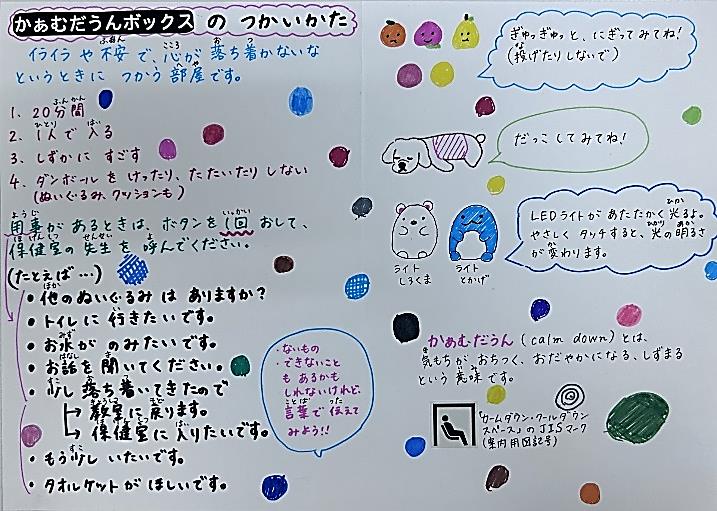 かぁむだうんボックス の つかいかた
イライラ や 不安 で、心が 落ち着かないな
というときに つかう 部屋です。
1. 20分間
2. 1人で 入る
3. しずかに すごす
4. ダンボールを けったり、たたいたり しない
(ぬいぐるみ、クッションも)
用事が あるときは、ボタンを 1回 おして、
保健室の 先生を 呼んでください。
(たとえば…)
・他のぬいぐるみ は ありますか?
・トイレに 行きたいです。
・お水が のみたいです。
・お話を 聞いてください。
・少し 落ち着いてきたので
→ 教室に 戻ります。
→ 保健室に 入りたいです。
・もう少し いたいです。
・タオルケットが ほしいです。
・ないもの
・できないこと
も あるかも
しれないけれど、
言葉で 伝えて
みよう!!
ぎゅっぎゅっと、にぎってみてね!
(投げたりしないで)
だっこ してみてね!
LEDライトが あたたかく 光るよ。
やさしく タッチすると、光の 明るさ
が 変わります。
ライト
しろくま
ライト
とかげ
かぁむだうん (calm down) とは、
気もちが おちつく、おだやかになる、しずまる
という 意味 です。
「カームダウン・クールダウン
スペース」の JISマーク
(案内用図記号)